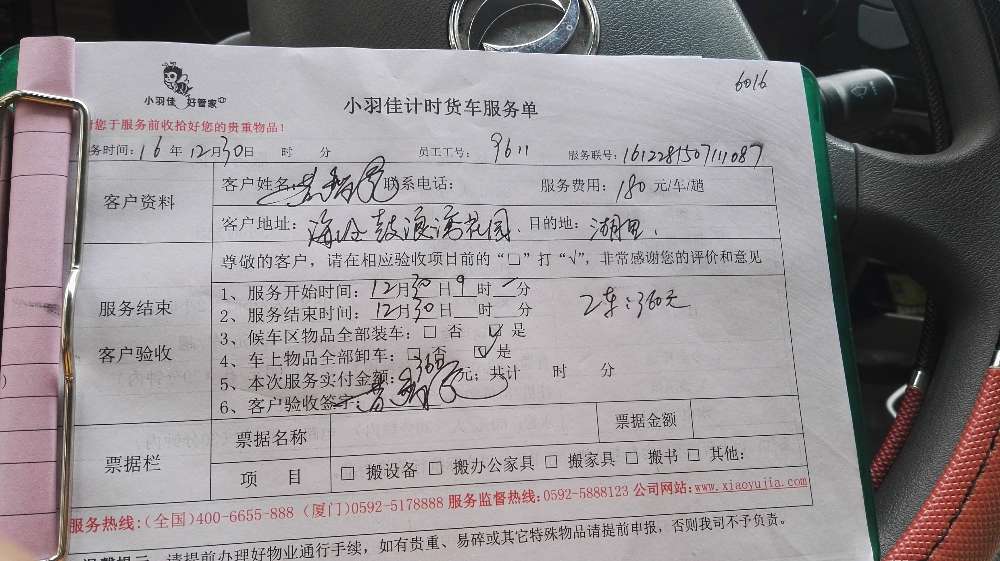 6016
小羽佳 好管家
小羽佳计时货车服务单
您于服务前收拾好您的贵重物品！
务时间：16年12月30日 时 分 员工工号：9611 服务联号：161228150711087
客户资料
客户姓名： 联系电话： 服务费用：180元/车/趟
客户地址：海沧鼓浪湾花园. 目的地：湖里.
尊敬的客户，请在相应验收项目前的“□”打“√”，非常感谢您的评价和意见
服务结束
客户验收
1、服务开始时间：12月30日9时 分
2、服务结束时间：12月30日 时 分
2车：360元
3、候车区物品全部装车：□ 否 ☑ 是
4、车上物品全部卸车：□ 否 ☑ 是
5、本次服务实付金额：360元；共计 时 分
6、客户验收签字：
票据栏
票据名称 票据金额
项 目 □ 搬设备 □ 搬办公家具 □ 搬家具 □ 搬书 □ 其他：
服务热线：(全国)400-6655-888 (厦门)0592-5178888 服务监督热线：0592-5888123 公司网站：www.xiaoyujia.com
请提前办理好物业通行手续，如有贵重、易碎或其它特殊物品请提前申报，否则我司不予负责。